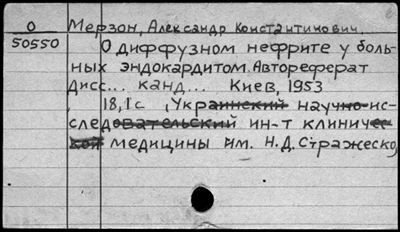 О Мерзон, Александр Константинович.
50550 О диффузном нефрите у боль-
ных эндокардитом. Автореферат
дисс... канд... Киев, 1953
18,1с , Украинский научно-ис-
следовательский ин-т клиничес-
кой медицины им. Н.Д. Стражеско,